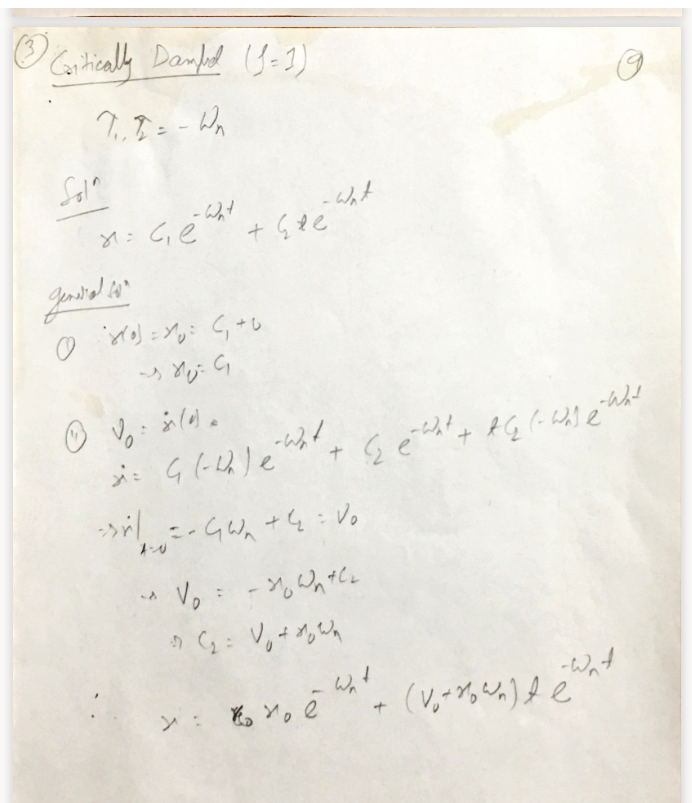 ③ Critically Damped (ζ=1) ⑨
r₁, r₂ = - ωn
Solⁿ
x = C₁ e^{-ωnt} + C₂ t e^{-ωnt}
general solⁿ
① x(0) = x₀ = C₁ + 0
→ x₀ = C₁
⑪ V₀ = ẋ(0) =
ẋ = C₁ (-ωn) e^{-ωnt} + C₂ e^{-ωnt} + t C₂ (-ωn) e^{-ωnt}
→ ẋ|_{t=0} = - C₁ωn + C₂ = V₀
→ V₀ = - x₀ ωn + C₂
⇒ C₂ = V₀ + x₀ ωn
∴ x = x₀ e^{-ωnt} + (V₀ + x₀ ωn) t e^{-ωnt}